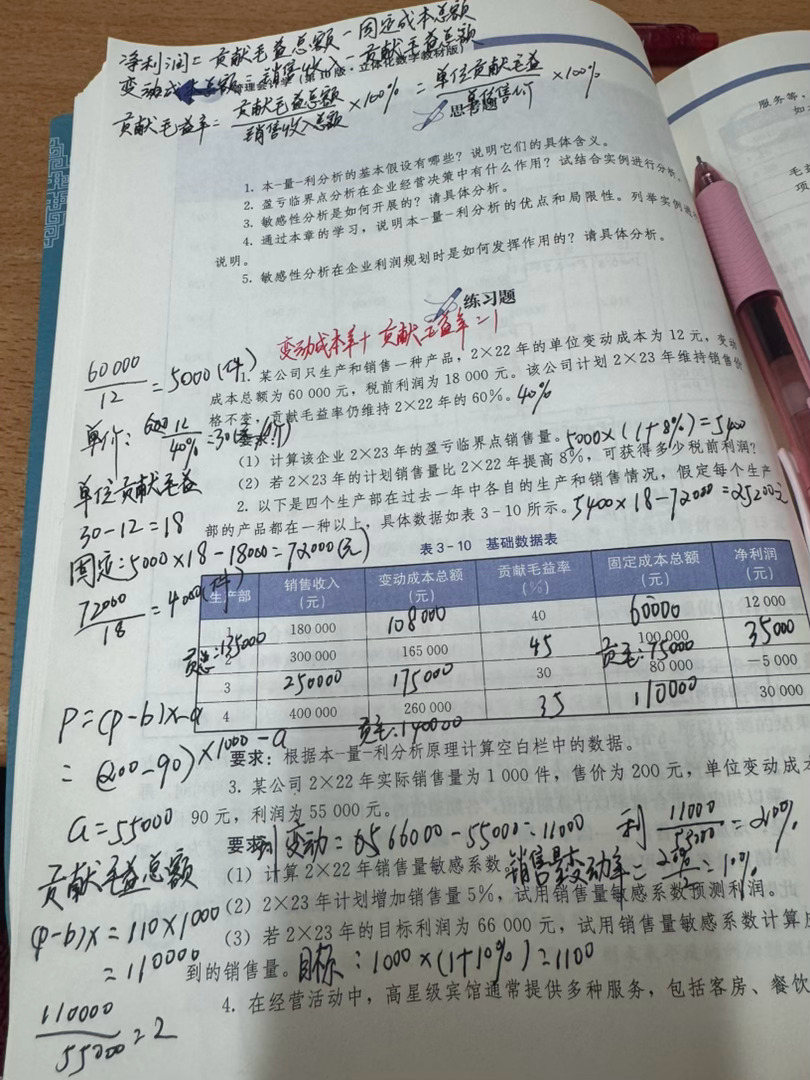 净利润=贡献毛益总额-固定成本总额
变动成本总额=销售收入-贡献毛益总额
管理会计学(第10版·立体化数字教材版)
贡献毛益率=贡献毛益总额/销售收入总额×100%=单位贡献毛益/单位售价×100%
思考题
1. 本-量-利分析的基本假设有哪些?说明它们的具体含义。
2. 盈亏临界点分析在企业经营决策中有什么作用?试结合实例进行分析。
3. 敏感性分析是如何开展的?请具体分析。
4. 通过本章的学习,说明本-量-利分析的优点和局限性。列举实例进
说明。
5. 敏感性分析在企业利润规划时是如何发挥作用的?请具体分析。
练习题
变动成本率+贡献毛益率=1
60000/12=5000(件)
1. 某公司只生产和销售一种产品,2×22年的单位变动成本为12元,变动
成本总额为60 000元,税前利润为18 000元。该公司计划2×23年维持销售价
格不变,贡献毛益率仍维持2×22年的60%。40%
单价:12/40%=30
(1)计算该企业2×23年的盈亏临界点销售量。5000×(1+8%)=5400
(2)若2×23年的计划销售量比2×22年提高8%,可获得多少税前利润?
单位贡献毛益
30-12=18
2. 以下是四个生产部在过去一年中各自的生产和销售情况,假定每个生产
部的产品都在一种以上,具体数据如表3-10所示。5400×18-72000=25200元
固定:5000×18-18000=72000(元)
72000/18=4000(件)
表3-10 基础数据表
生产部 销售收入(元) 变动成本总额(元) 贡献毛益率(%) 固定成本总额(元) 净利润(元)
1 180 000 108000 40 60000 12 000
贡总:135000
2 300 000 165 000 45 100 000 35000
贡毛:75000
3 250000 175000 30 80 000 -5 000
4 400 000 260 000 35 110000 30 000
贡毛:140000
要求:根据本-量-利分析原理计算空白栏中的数据。
P=(p-b)x-a
=(200-90)×1000-a
a=55000
3. 某公司2×22年实际销售量为1 000件,售价为200元,单位变动成本
90元,利润为55 000元。
要求:
利变动=66000-55000=11000
利 11000/55000=20%
(1)计算2×22年销售量敏感系数。
销售量变动率=20%/2=10%
(2)2×23年计划增加销售量5%,试用销售量敏感系数预测利润。
(3)若2×23年的目标利润为66 000元,试用销售量敏感系数计算
到的销售量。目标:1000×(1+10%)=1100
贡献毛益总额
(p-b)x=110×1000
=110000
110000/55000=2
4. 在经营活动中,高星级宾馆通常提供多种服务,包括客房、餐饮
服务等,
如
毛益
项